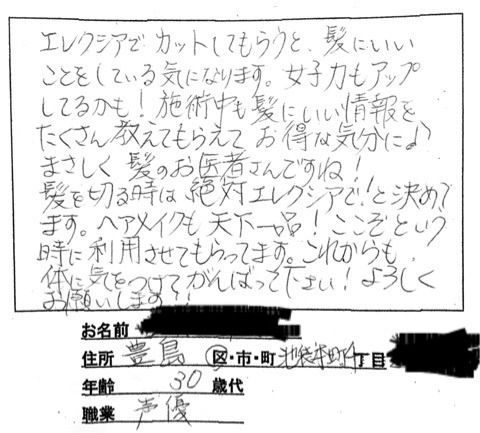 エレクシアでカットしてもらうと、髪にいい
ことをしている気になります。女子力もアップ
してるかも！施術中も髪にいい情報を
たくさん教えてもらえてお得な気分に♪
まさしく髪のお医者さんですね！
髪を切る時は絶対エレクシアで！と決めて
ます。ヘアメイクも天下一品！ここぞという
時に利用させてもらってます。これからも、
体に気をつけてがんばって下さい！よろしく
お願いします!!
お名前
住所 豊島 区・市・町 池袋本町4丁目
年齢 30 歳代
職業 声優